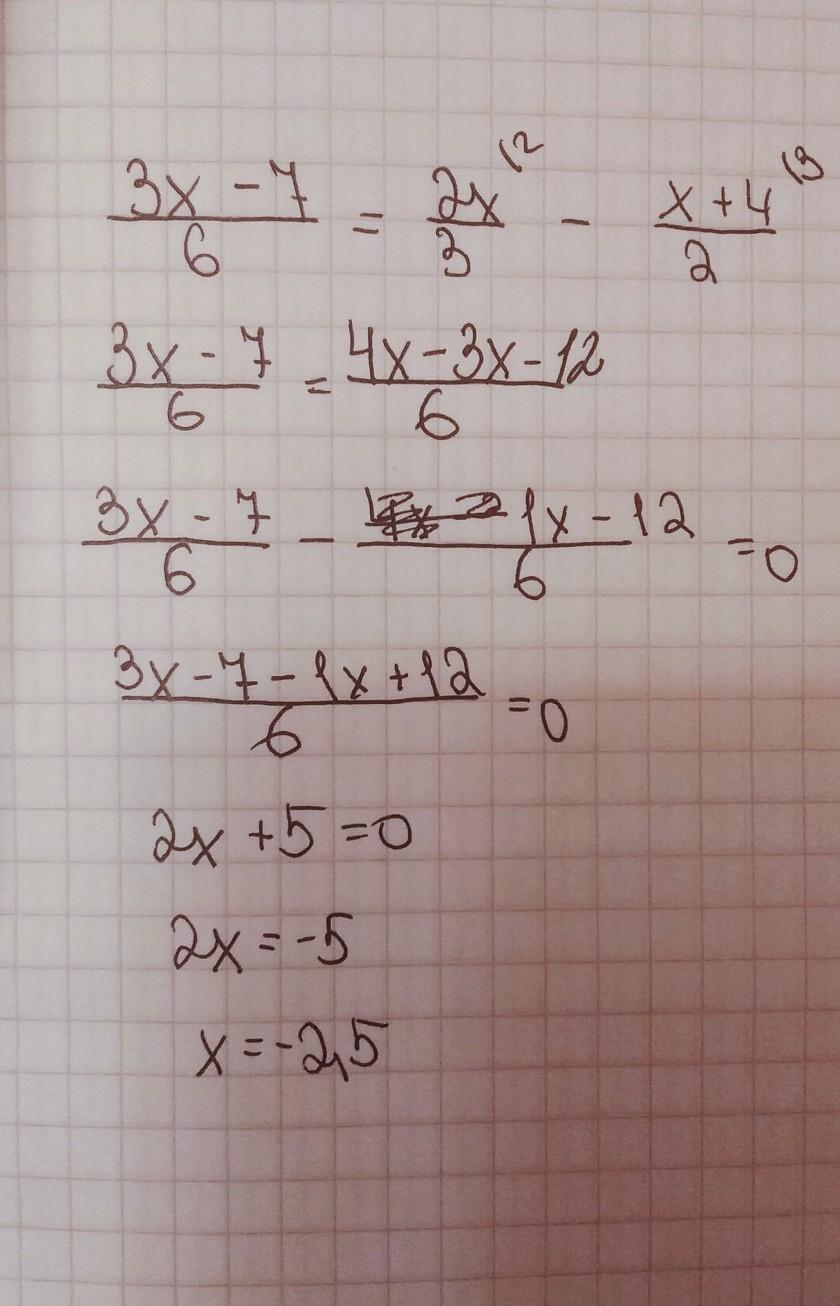 (3x - 7)/6 = 2x\2/3 - x + 4\3/2
3x - 7/6 = 4x - 3x - 12/6
3x - 7/6 - 1x - 12/6 = 0
3x - 7 - 1x + 12/6 = 0
2x + 5 = 0
2x = -5
x = -2,5